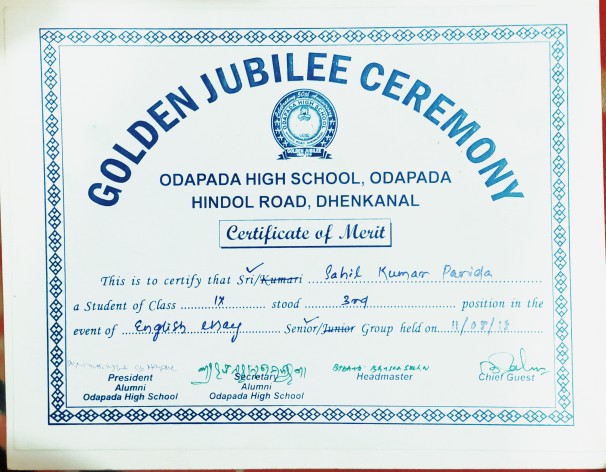 GOLDEN JUBILEE CEREMONY
ODAPADA HIGH SCHOOL
GOLDEN JUBILEE
ODAPADA HIGH SCHOOL, ODAPADA
HINDOL ROAD, DHENKANAL
Certificate of Merit
This is to certify that Sri/Kumari Sahil Kumar Parida
a Student of Class IX stood 3rd position in the
event of English essay Senior/Junior Group held on 11/08/18
President Secretary Headmaster Chief Guest
Alumni Alumni
Odapada High School Odapada High School